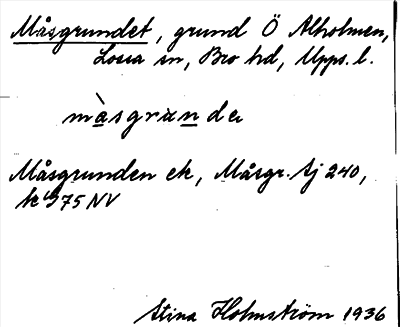 Måsgrundet, grund Ö Alholmen,
Lossa sn, Bro hd, Upps. l.
mà̱sgrùṉdə
Måsgrunden ek, Måsgr. Sj 240,
k 975 NV
Stina Holmström 1936